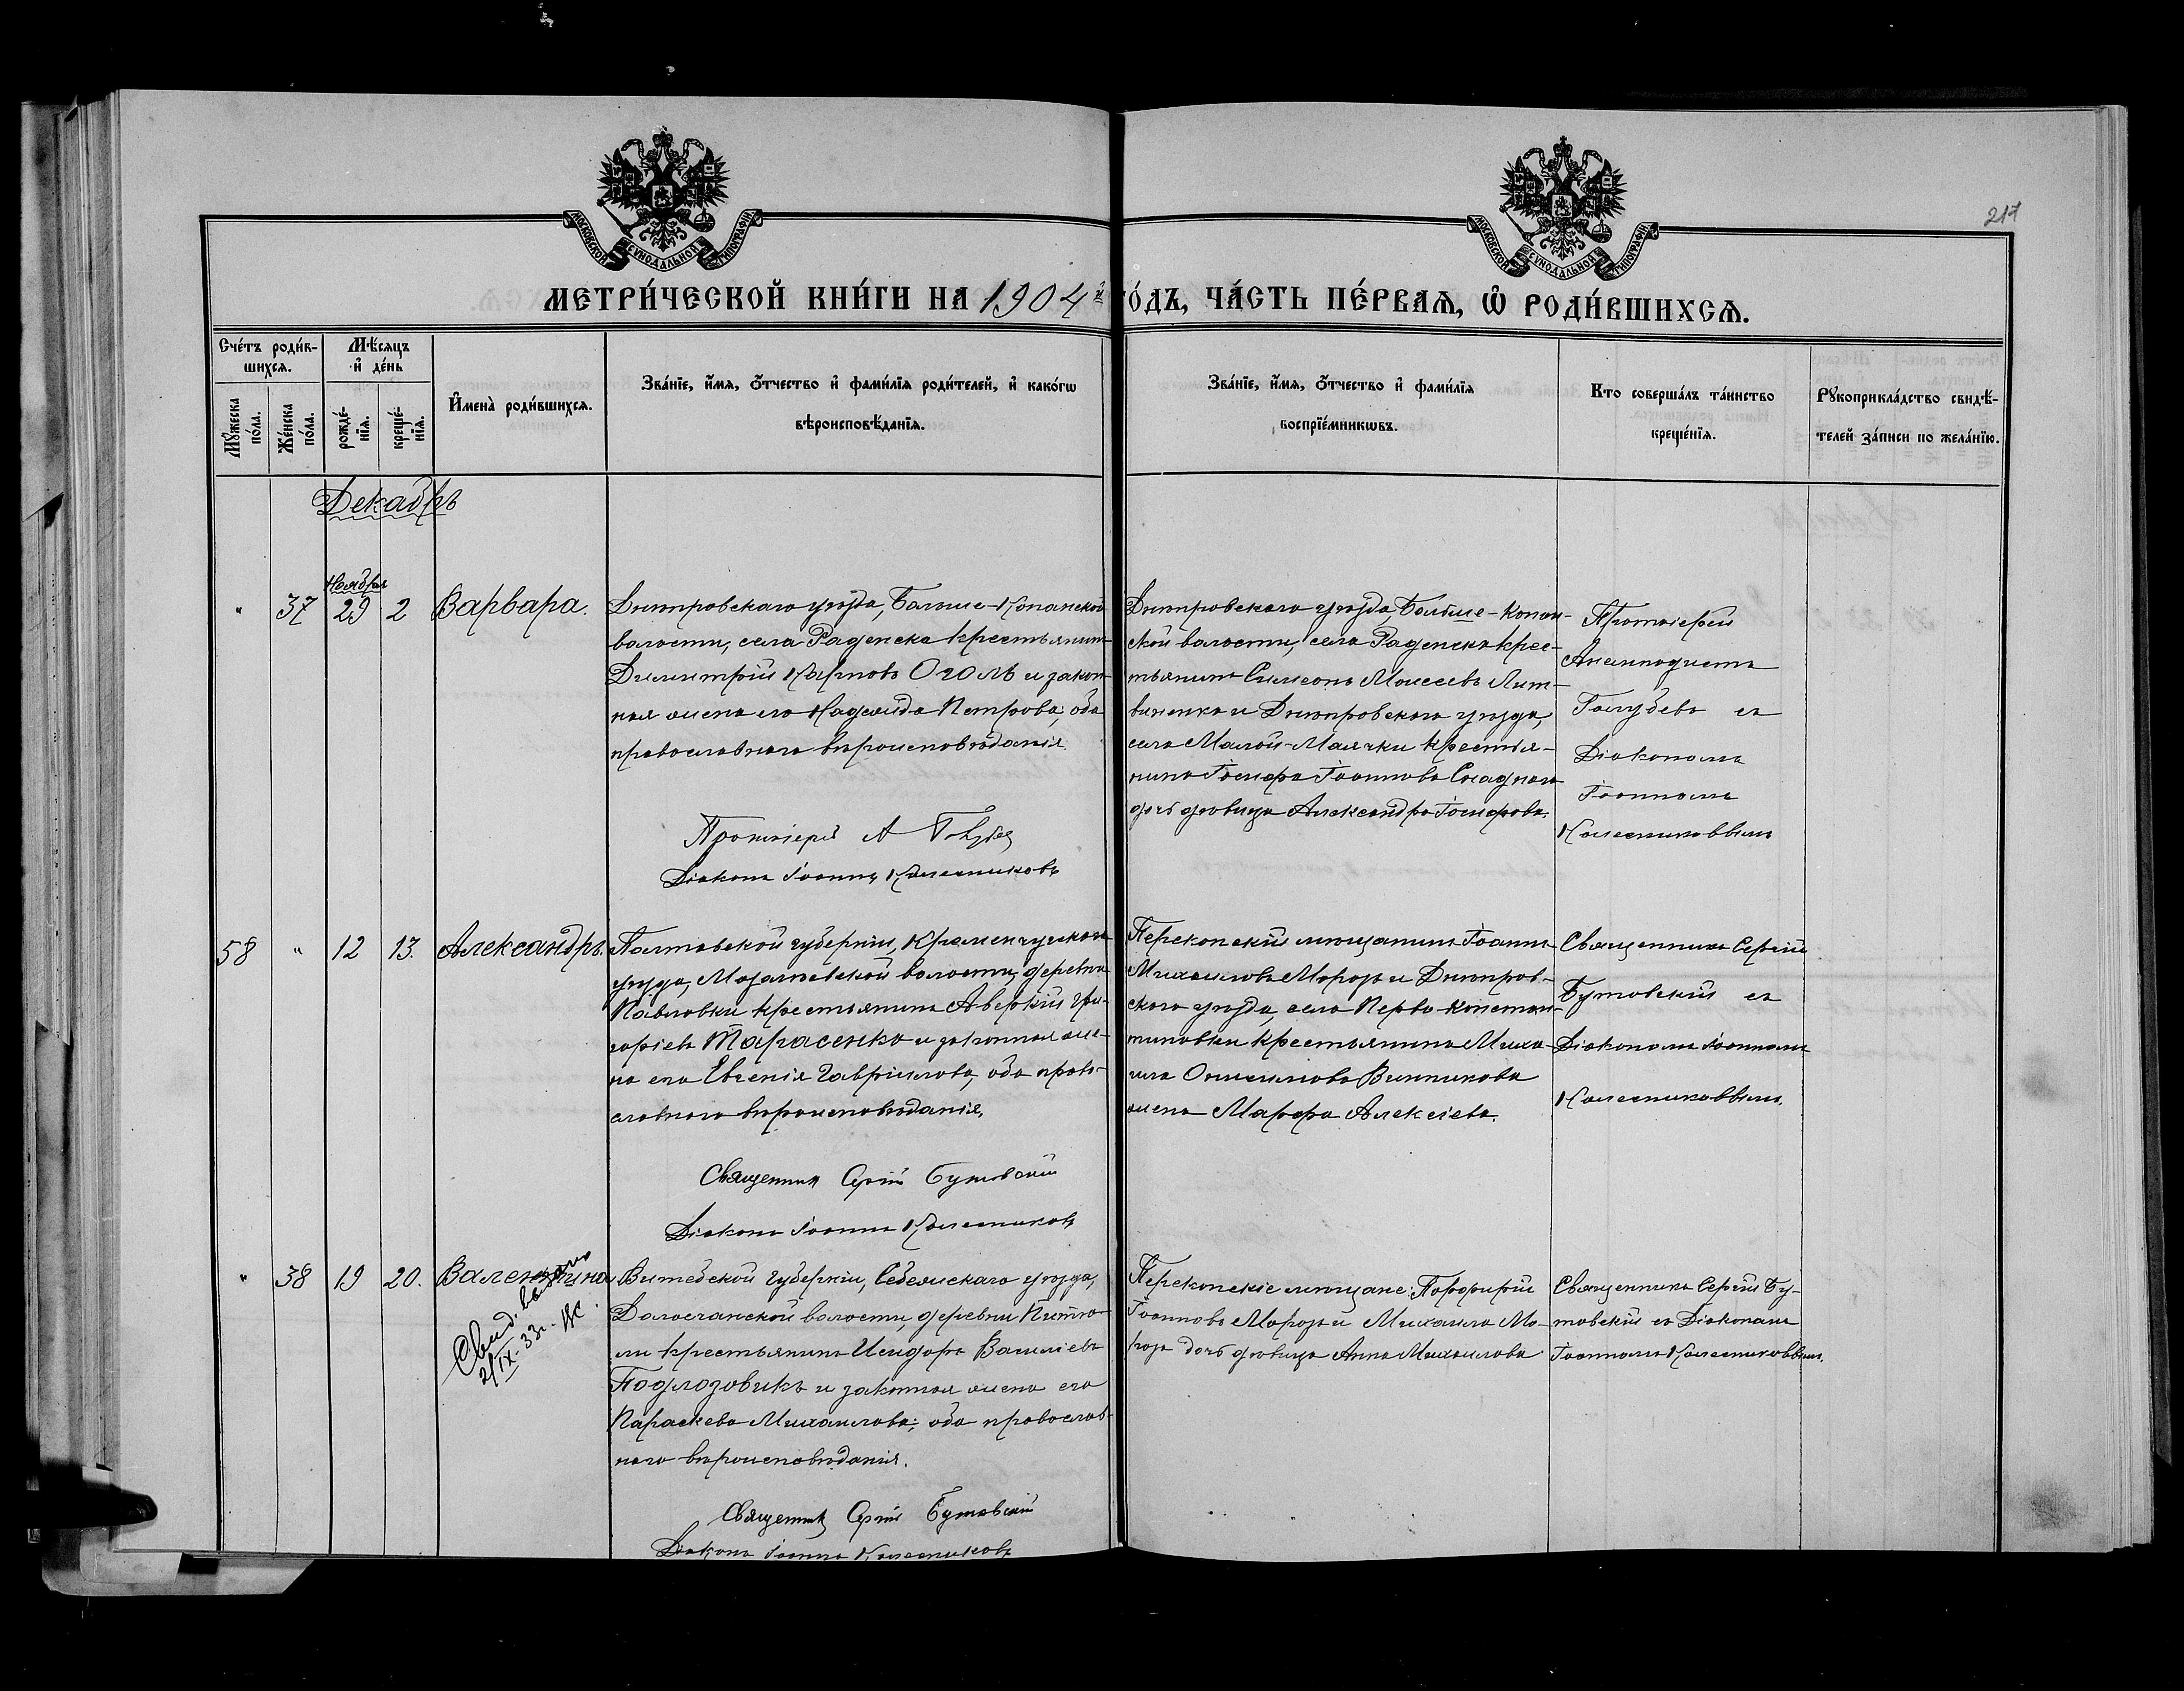 217
МОСКОВСКОЙ СѴНОДАЛЬНОЙ ТИПОГРАФІИ
МОСКОВСКОЙ СѴНОДАЛЬНОЙ ТИПОГРАФІИ
МЕТРИ́ЧЕСКОЙ КНИ́ГИ НА 1904й ГО́ДЪ, ЧА́СТЬ ПЕ́РВАѦ, Ѡ҆ РОДИ́ВШИХСѦ.
Сче́тъ роди́в-
шихсѧ.
Мꙋ́жеска
по́ла.
Же́нска
по́ла.
Мѣ́сѧцъ
и҆ де́нь
рожде́-
нїѧ.
креще́-
нїѧ.
И҆мена̀ роди́вшихсѧ.
Зва́нїе, и҆́мѧ, ѻ҆́тчество и҆ фами́лїѧ роди́телей, и҆ како́гѡ
вѣроисповѣ́данїѧ.
Зва́нїе, и҆́мѧ, ѻ҆́тчество и҆ фами́лїѧ
воспрїе́мникѡвъ.
Кто соверша́лъ та́инство
креще́нїѧ.
Рꙋкоприкла́дство свидѣ́-
телей за́писи по жела́нїю.
Декабрь
Ноября
" 37 29 2 Варвара.
Днѣпровскаго уѣзда, Больше-Копанской
волости, села Раденска крестьянинъ
Димитрій Карповъ Оголь и закон-
ная жена его Надежда Петрова; оба
православнаго вѣроисповѣданія.
Протоіерей А Голубев
Діаконъ Іоаннъ Колесниковъ
Днѣпровскаго уѣзда, Больше-Копан-
ской волости, села Раденска крес-
тьянинъ Симеонъ Моисеевъ Лит-
виненко и Днѣпровскаго уѣзда,
села Малой-Маячки крестья-
нина Іосифа Іоаннова Скаднаго
дочь дѣвица Александра Іосифова.
Протоіерей
Анемподистъ
Голубевъ съ
Діакономъ
Іоанномъ
Колесниковымъ
58 " 12 13. Александръ.
Полтавской губерніи, Кременчугскаго
уѣзда, волости, деревни
Павловки крестьянинъ Аверкій Гри-
горіевъ Тарасенко и законная же-
на его Евгенія Гавріилова, оба право-
славнаго вѣроисповѣданія.
Священник Сергій Бутовскій
Діаконъ Іоаннъ Колесниковъ
Перекопскій мѣщанинъ Іоаннъ
Михаиловъ Морозъ и Днѣпров-
скаго уѣзда, села Перво-Констан-
тиновки крестьянина Миха-
ила Онисимова Винникова
жена Марфа Алексіева.
Священникъ Сергій
Бутовскій съ
Діакономъ Іоанномъ
Колесниковымъ.
" 38 19 20. Валентина
Свид. выдано
2/IX-33г.
Витебской губерніи, Себежскаго уѣзда,
Долосчанской волости, деревни
крестьянинъ Исидоръ Василіевъ
Подлозовикъ и законная жена его
Параскева Михаилова; оба православ-
наго вѣроисповѣданія.
Священник Сергій Бутовскій
Діаконъ Іоаннъ Колесниковъ
Перекопскіе мѣщане: Порфирій
Іоанновъ Морозъ и Михаила Мо-
роза дочь дѣвица Анна Михаилова
Священникъ Сергій Бу-
товскій съ Діакономъ
Іоанномъ Колесниковымъ.